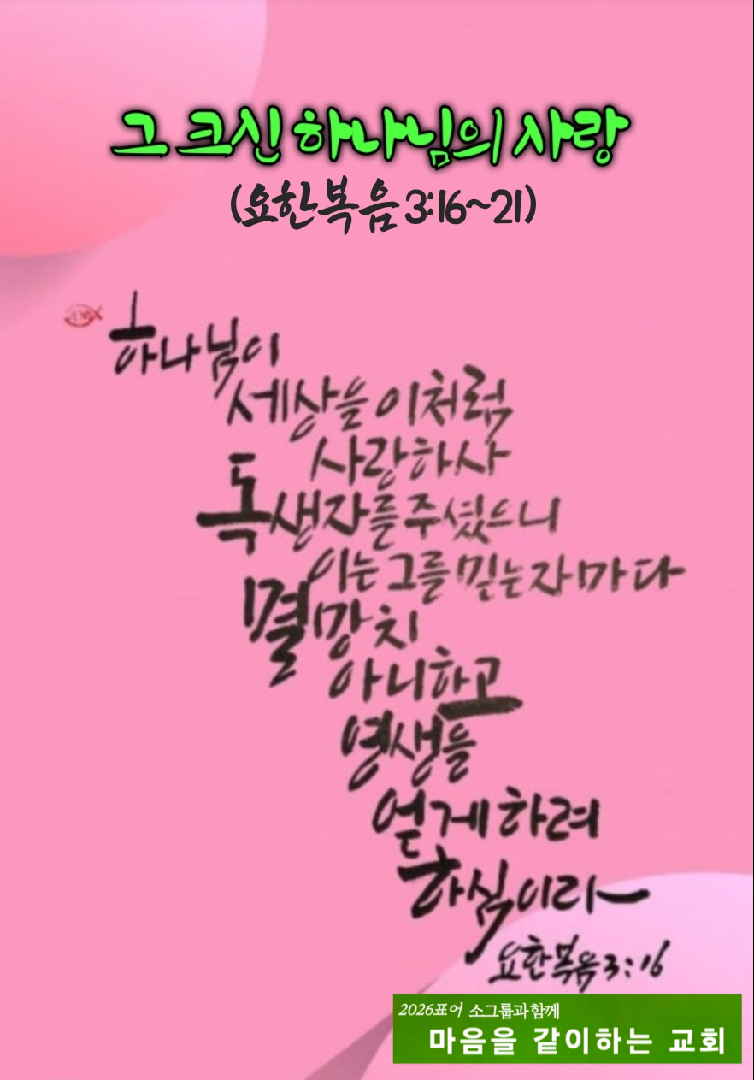 그 크신 하나님의 사랑
(요한복음 3:16~21)
하나님이
세상을 이처럼
사랑하사
독생자를 주셨으니
이는 그를 믿는 자마다
멸망치
아니하고
영생을
얻게 하려
하심이라
요한복음 3:16
2026표어 소그룹과 함께
마음을 같이하는 교회